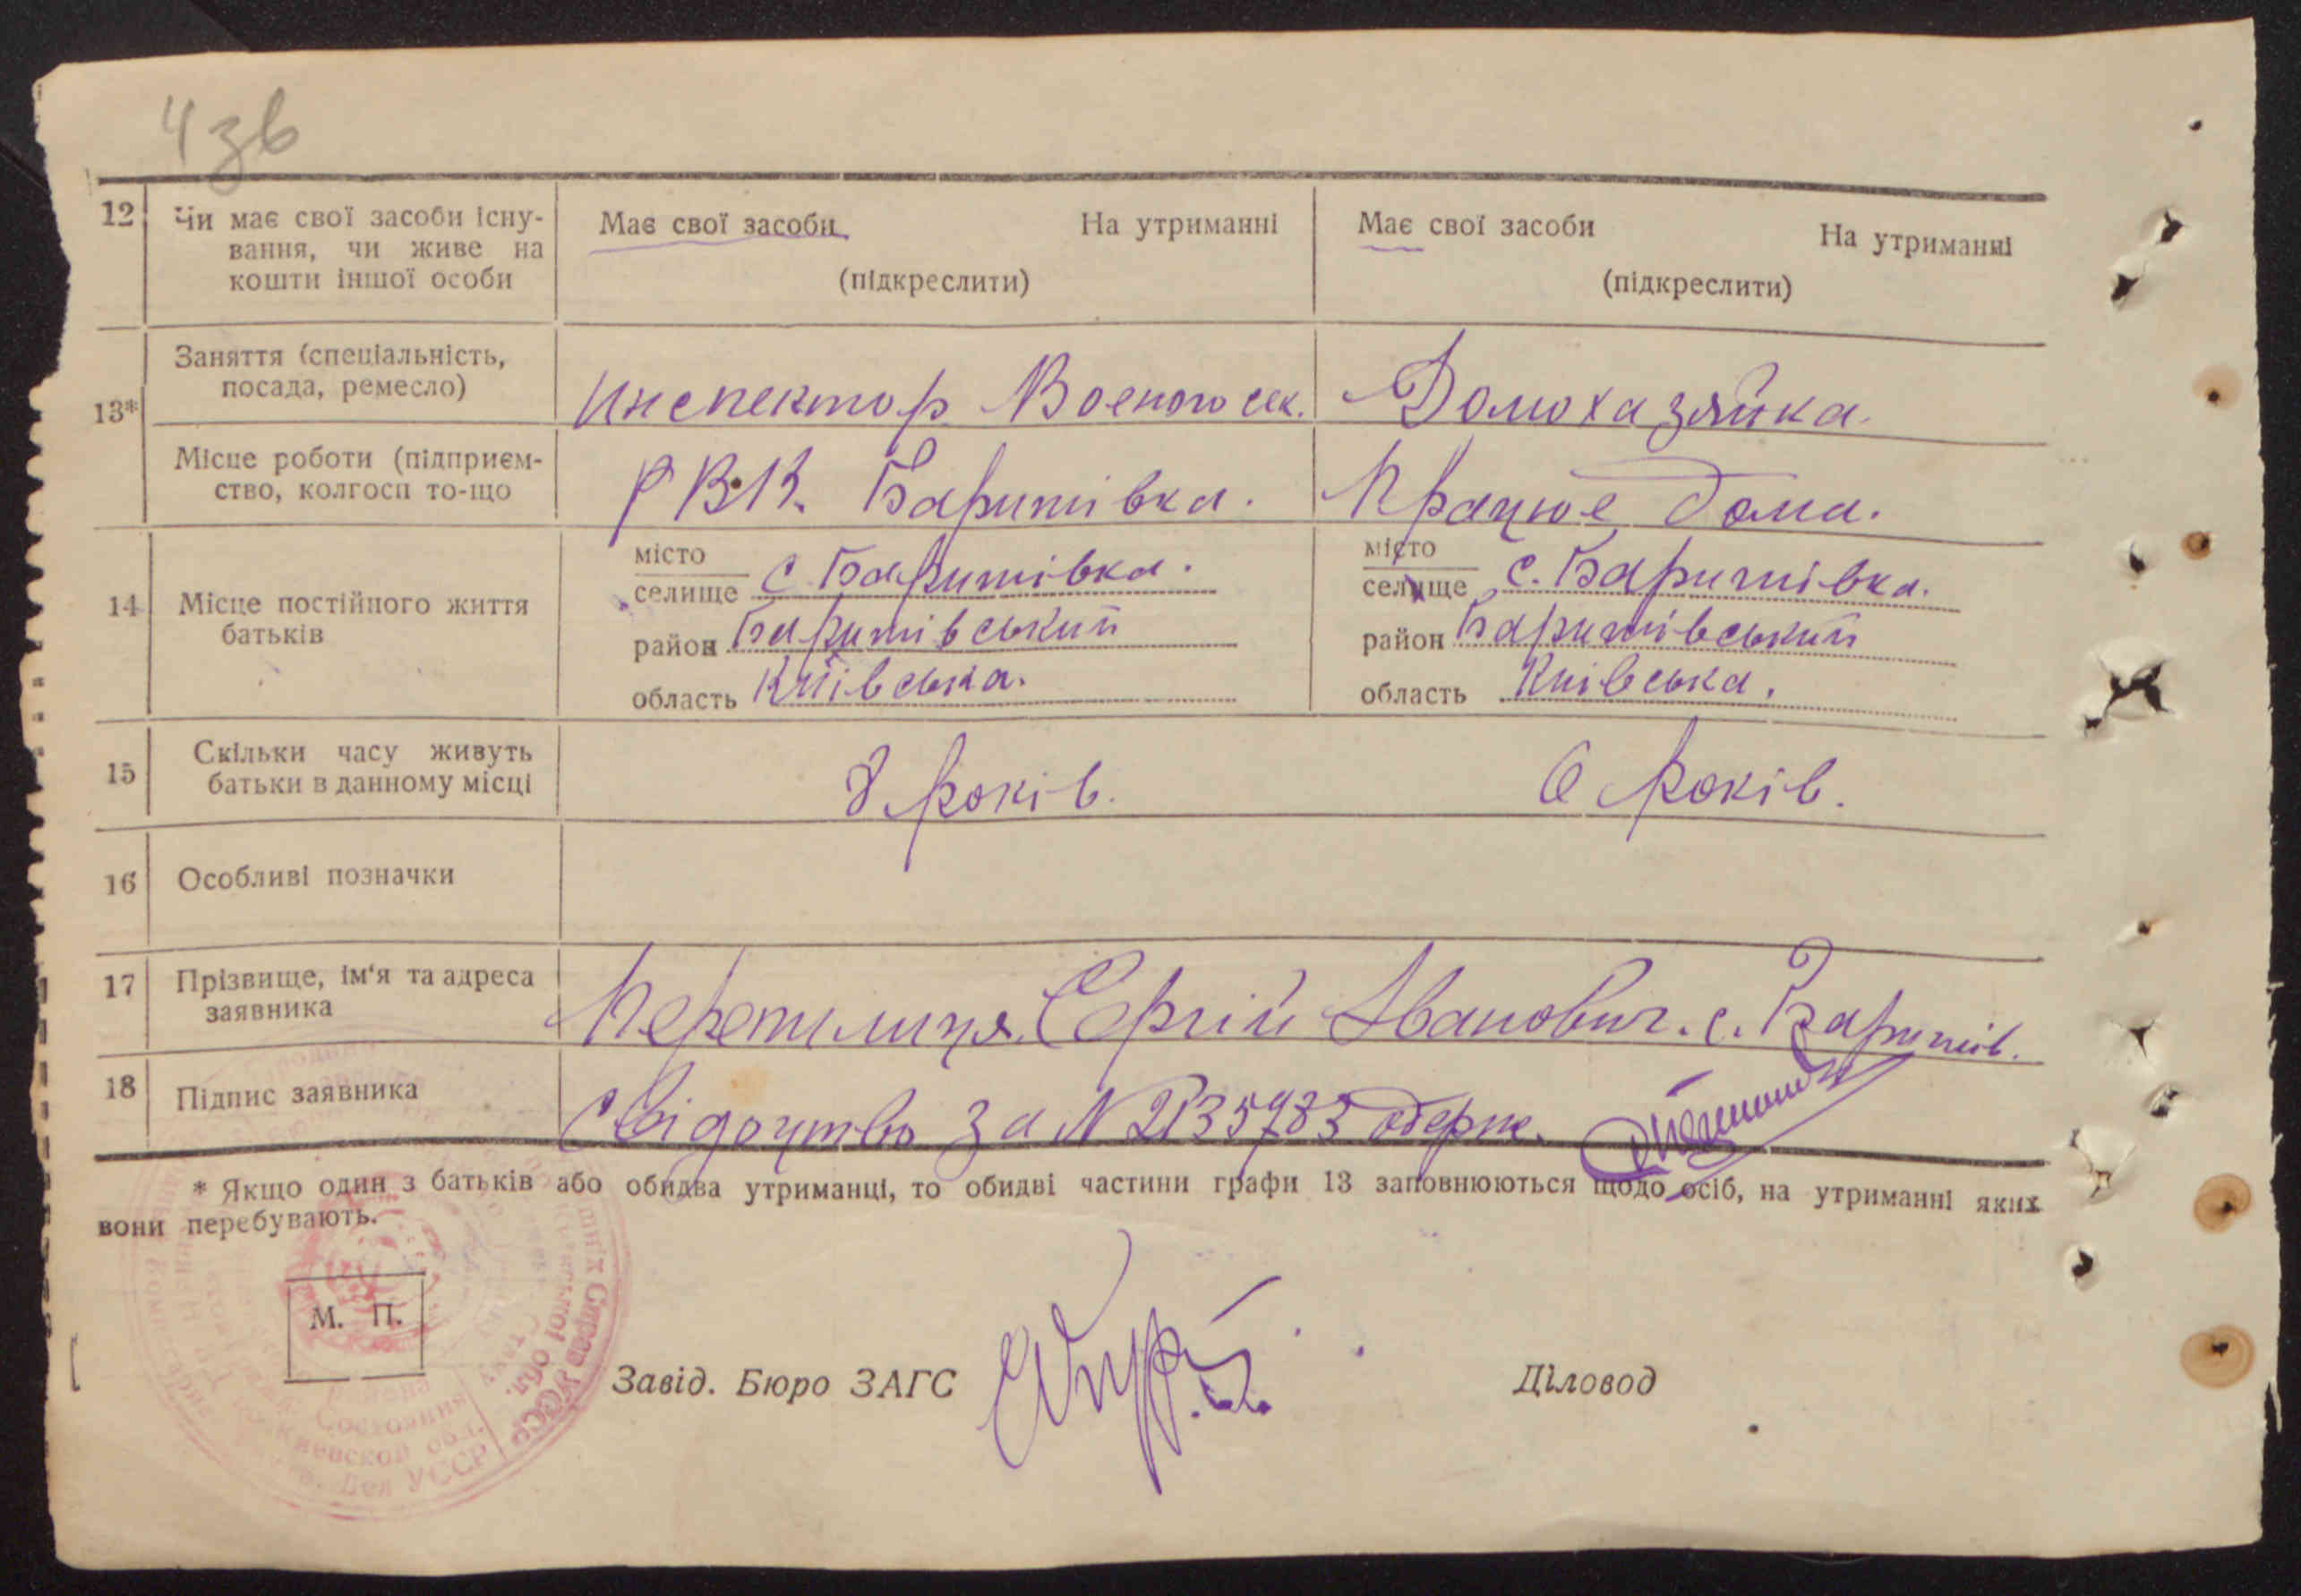 4 зв
12 Чи має свої засоби існу-
вання, чи живе на
кошти іншої особи
Має свої засоби На утриманні
(підкреслити)
Має свої засоби На утриманні
(підкреслити)
13* Заняття (спеціальність,
посада, ремесло)
Инспектор Воєного сек.
Домохазяйка.
Місце роботи (підприєм-
ство, колгосп то-що
РВК. Баришівка.
Працює дома.
14 Місце постійного життя
батьків
місто
селище с. Баришівка.
район Баришівський
область Київська.
місто
селище с. Баришівка.
район Баришівський
область Київська.
15 Скільки часу живуть
батьки в данному місці
8 років.
6 років.
16 Особливі позначки
17 Прізвище, ім'я та адреса
заявника
Перепилиця Сергій Іванович. с. Баришів.
18 Підпис заявника
Свідоцтво за N 2135783 одерж.
* Якщо один з батьків або обидва утриманці, то обидві частини графи 13 заповнюються щодо осіб, на утриманні яких
вони перебувають.
М. П.
Завід. Бюро ЗАГС
Діловод